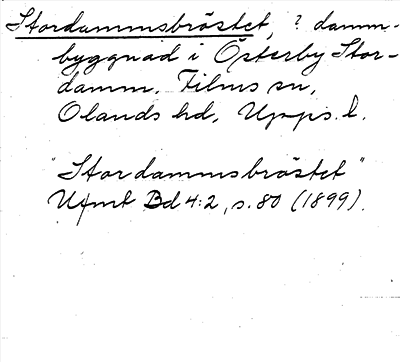 Stordammsbröstet, ? damm-
byggnad i Österby Stor-
damm, Films sn,
Olands hd, Upps. l.
"Stordammsbröstet"
Ufmt Bd 4:2, s. 80 (1899).